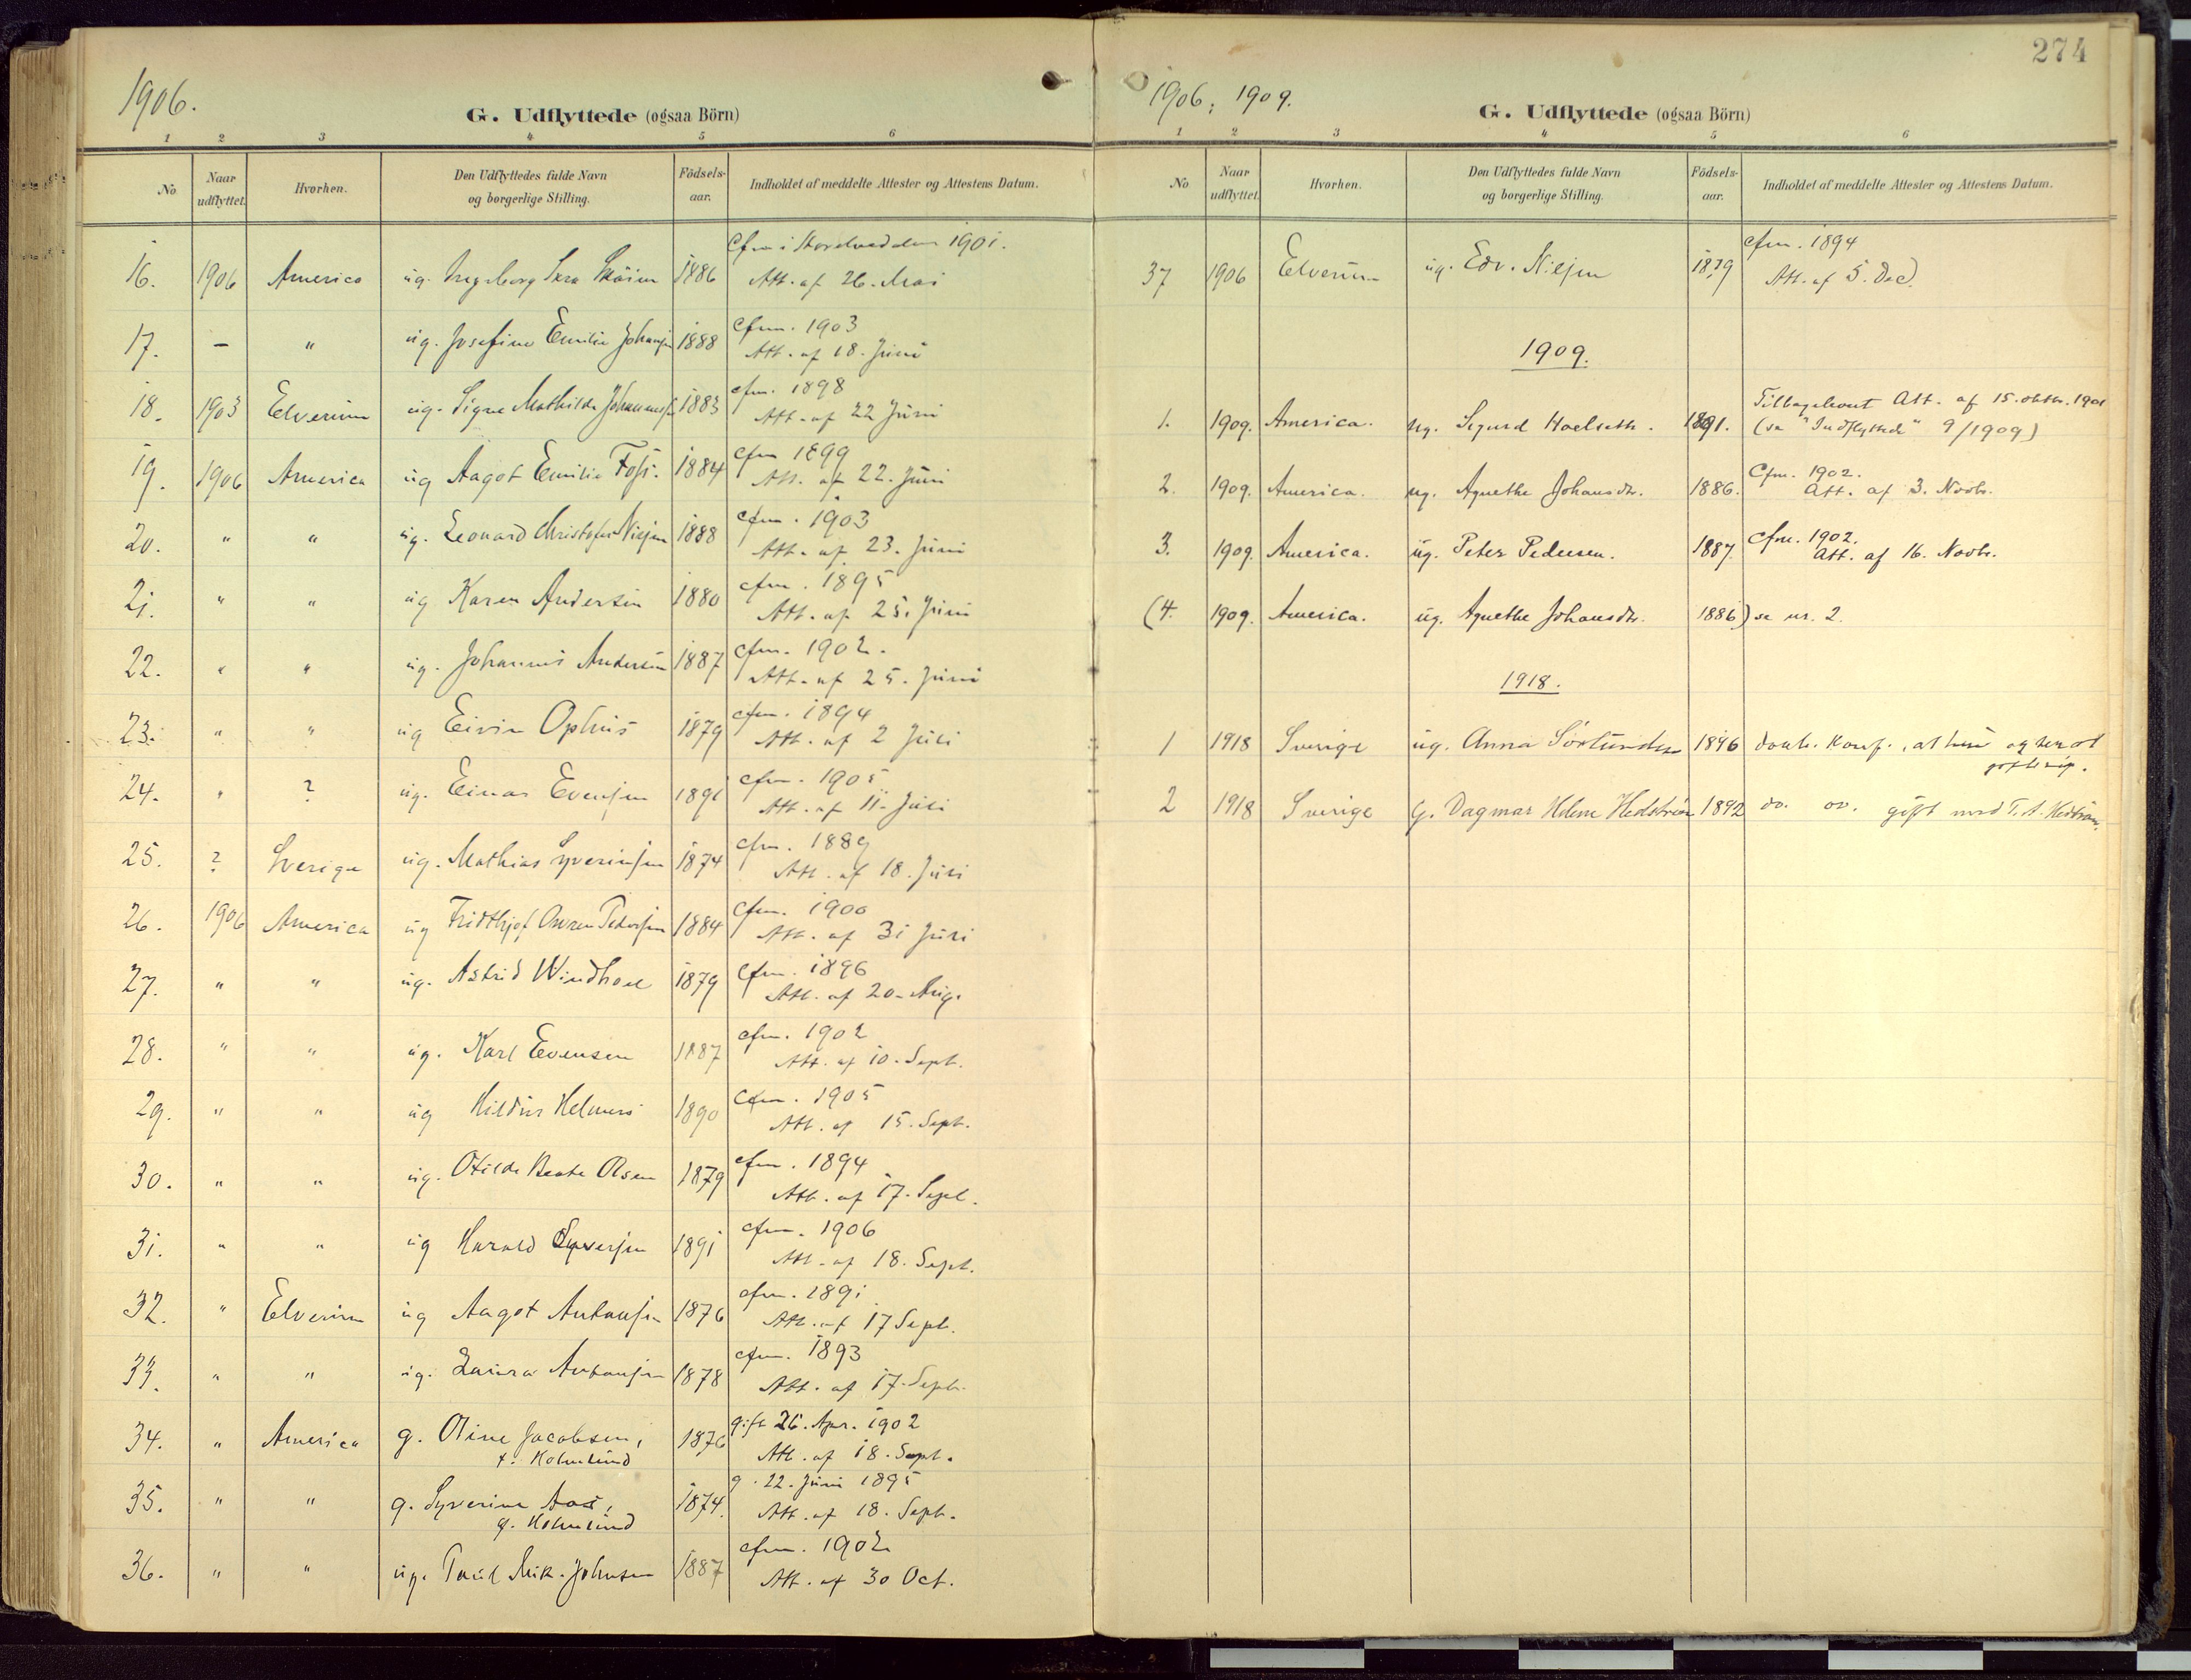 1906.
G. Udflyttede (ogsaa Börn)
1 2 3 4 5 6
No Naar udflyttet. Hvorhen. Den Udflyttedes fulde Navn og borgerlige Stilling. Födsels-aar. Indholdet af meddelte Attester og Attestens Datum.
Cfm i 1901.
16. 1906 America ug. Ingeborg 1886 Att. af 26. Mai
cfm. 1903
17. — " ug. Josefine Emilie Johansen 1888 Att. af 18. Juni
cfm. 1898
18. 1903 Elverum ug. Signe Mathilde 1883 Att. af 22 Juni
cfm 1899
19. 1906 America ug Aagot Emilie Foss. 1884 Att. af 22. Juni
cfm. 1903
20. " " ug. Leonard Christofer Nilsen 1888 Att. af 23. Juni
cfm. 1895
21. " " ug Karen Andersen 1880 Att. af 25. Juni
cfm. 1902.
22. " " ug. Johannes Andersen 1887 Att. af 25. Juni
cfm. 1894
23. " " ug Eivin Ophus 1879 Att. af 2 Juli
cfm. 1905
24. " ? ug. Einar Evensen 1891 Att. af 11. Juli
cfm. 1889
25. ? Sverige ug. Mathias Syverinsen 1874 Att. af 18. Juli
cfm. 1900
26. 1906 America ug Fridthjof Owren Pedersen 1884 Att. af 31 Juli
Cfm. 1896
27. " " ug. Astrid Windhoel 1879 Att. af 20. Aug.
cfm. 1902
28. " " ug. Karl Evensen 1887 Att. af 10. Sept.
Cfm. 1905
29. " " ug Hildur Helmers 1890 Att. af 15. Sept.
cfm. 1894
30. " " ug. Otilde Beate Olsen 1879 Att. af 17. Sept.
cfm. 1906
31. " " ug Harald Syversen 1891 Att. af 18. Sept.
cfm. 1891
32. " Elverum ug Aagot Antonsen 1876 Att. af 17 Sept.
cfm. 1893
33. " " ug. Laura Antonsen 1878 Att. af 17. Sept.
gift 26. Apr. 1902
34. " America g. Oline Jacobsen, 1876 Att. af 18. Sept.
f. Holmlund
g. 22. Juni 1895
35. " " g. Syverine Aas, 1874. Att. af 18. Sept.
g. Holmlund
cfm. 1902
36. " " ug. Paul Mik. Johnsen 1887 Att. af 30 Oct.
274
1906; 1909.
G. Udflyttede (ogsaa Börn)
1 2 3 4 5 6
No Naar udflyttet. Hvorhen. Den Udflyttedes fulde Navn og borgerlige Stilling. Födsels-aar. Indholdet af meddelte Attester og Attestens Datum.
cfm. 1894
37 1906 Elverum ug. Edv. Nilsen 1879 Att. af 5. Dec.
1909.
Tilbagelevert Att. af 15. oktbr. 1901
1. 1909. America. ug. Sigurd Hoelseth. 1891. (se "Indflyttede" 9/1909)
Cfm. 1902.
2. 1909. America. ug. Agnethe Johansdtr. 1886. Att. af 3. Novbr.
cfm. 1902.
3. 1909. America. ug. Peter Pedersen. 1887. Att. af 16. Novbr.
(4. 1909. America. ug. Agnethe Johansdtr. 1886) se nr. 2.
1918.
1 1918 Sverige ug. Anna 1896 konf.
2 1918 Sverige G. Dagmar Helene Hedström 1892 do. do. gift med T. A. Hedström.